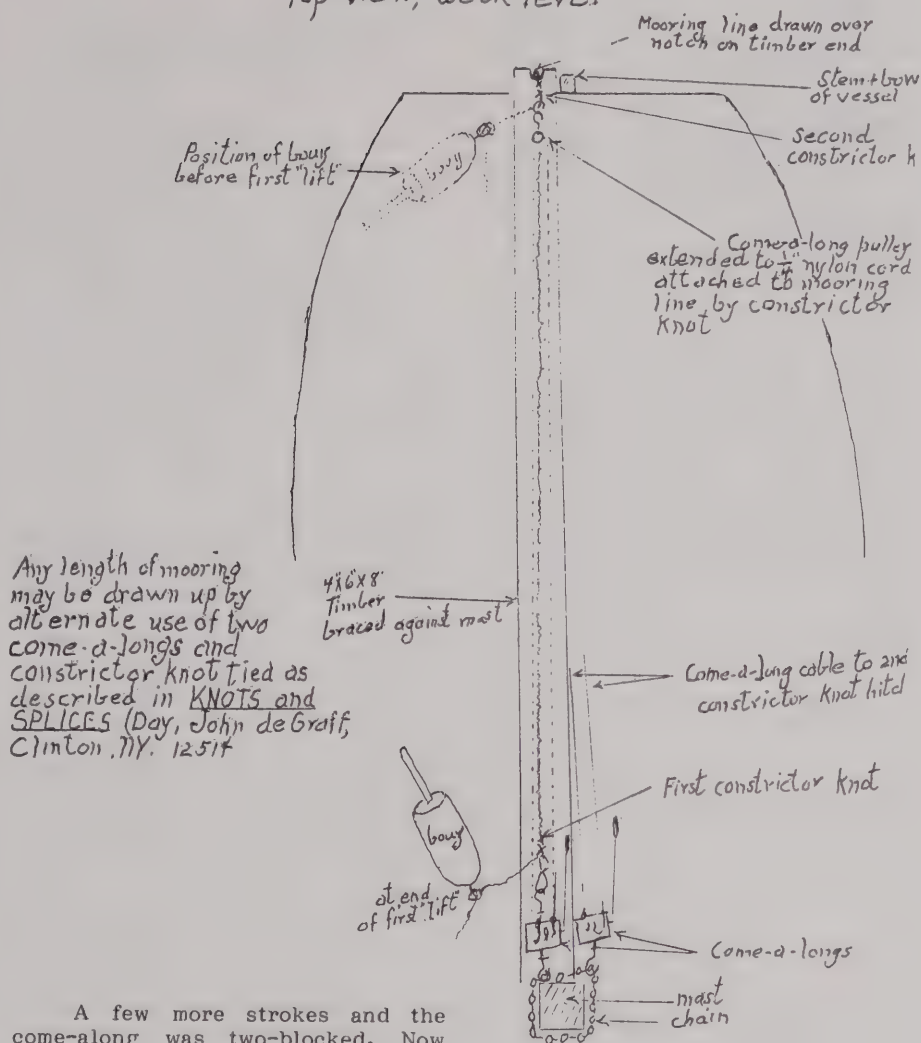 Top view, deck level
Mooring line drawn over
notch on timber end
Stem + bow
of vessel
second
constrictor k
Position of bouy
before first "lift"
bouy
Come-a-long pulley
extended to 1/4" nylon cord
attached to mooring
line by constrictor
knot
Any length of mooring
may be drawn up by
alternate use of two
come-a-longs and
constrictor knot tied as
described in KNOTS and
SPLICES (Day, John de Graff,
Clinton, NY. 12514
4"x6"x8'
Timber
braced against mast
Come-a-long cable to 2nd
constrictor knot hitch
First constrictor knot
bouy
at end
of first "lift"
Come-a-longs
mast
chain
A few more strokes and the
come-along was two-blocked. Now